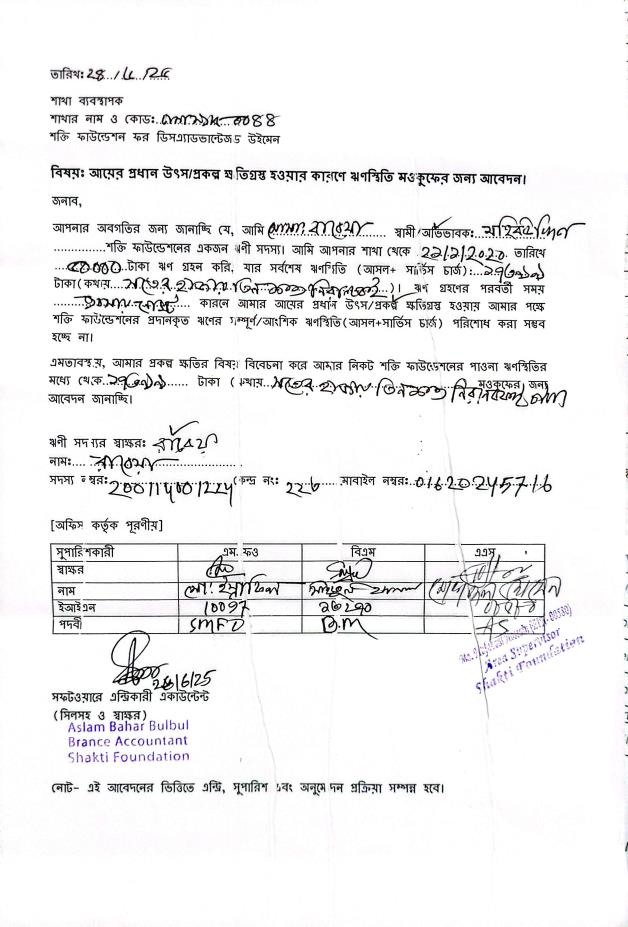 তারিখঃ ২৪../৬../২৫
শাখা ব্যবস্থাপক
শাখার নাম ও কোড: ০০৪৪
শক্তি ফাউন্ডেশন ফর ডিসএ্যাডভান্টেজড উইমেন
বিষয়ঃ আয়ের প্রধান উৎস/প্রকল্প ক্ষতিগ্রস্থ হওয়ার কারণে ঋণস্থিতি মওকুফের জন্য আবেদন।
জনাব,
আপনার অবগতির জন্য জানাচ্ছি যে, আমি মোসাঃ রাবেয়া স্বামী/অভিভাবক:
..............শক্তি ফাউন্ডেশনের একজন ঋণী সদস্য। আমি আপনার শাখা থেকে ২২/২/২০২০ তারিখে
৫০০০০ টাকা ঋণ গ্রহন করি, যার সর্বশেষ ঋণস্থিতি (আসল+ সার্ভিস চার্জ):
টাকা (কথায় সতের হাজার তিনশত )। ঋণ গ্রহণের পরবর্তী সময়
কারনে আমার আয়ের প্রধান উৎস/প্রকল্প ক্ষতিগ্রস্থ হওয়ায় আমার পক্ষে
শক্তি ফাউন্ডেশনের প্রদানকৃত ঋণের সম্পূর্ণ/আংশিক ঋণস্থিতি(আসল+সার্ভিস চার্জ) পরিশোধ করা সম্ভব
হচ্ছে না।
এমতাবস্থায়, আমার প্রকল্প ক্ষতির বিষয় বিবেচনা করে আমার নিকট শক্তি ফাউন্ডেশনের পাওনা ঋণস্থিতির
মধ্যে থেকে টাকা (কথায় সতের হাজার তিনশত মওকুফের জন্য
আবেদন জানাচ্ছি।
ঋণী সদস্যর স্বাক্ষরঃ রাবেয়া
নামঃ রাবেয়া
সদস্য নম্বর: 200114001224 কেন্দ্র নং: ২২৬ মোবাইল নম্বর: 01620245716
[অফিস কর্তৃক পূরণীয়]
সুপারিশকারী এম. ফও বিএম এএস
স্বাক্ষর
নাম মো:
ইআইএন 10097 ১৩২১০
পদবী SMFO B.M AS
Area Supervisor
Shakti Foundation
26/6/25
সফটওয়ারে এন্ট্রিকারী একাউন্টেন্ট
(সিলসহ ও স্বাক্ষর)
Aslam Bahar Bulbul
Brance Accountant
Shakti Foundation
নোট- এই আবেদনের ভিত্তিতে এন্ট্রি, সুপারিশ এবং অনুমোদন প্রক্রিয়া সম্পন্ন হবে।